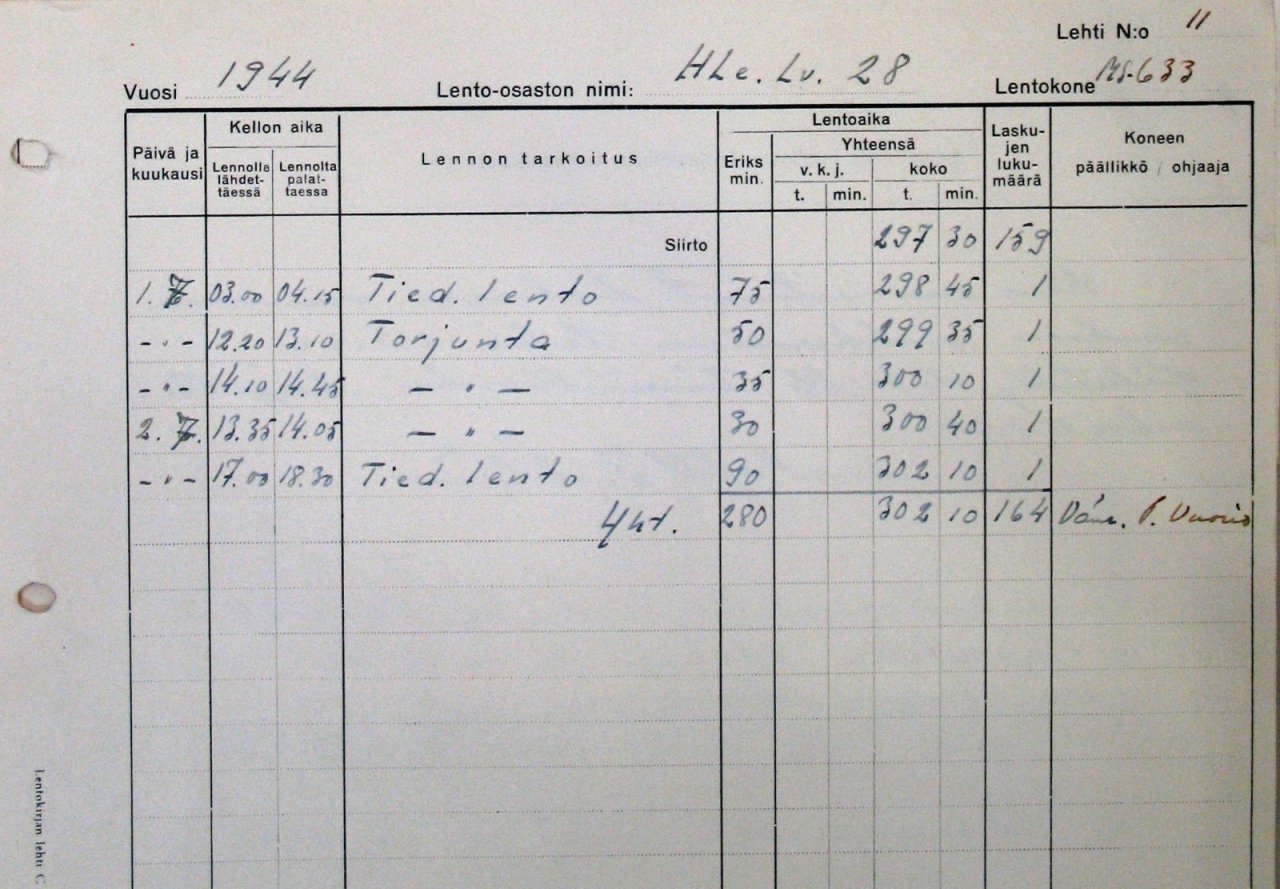 Lehti N:o 11
Vuosi 1944 Lento-osaston nimi: HLe. Lv. 28 Lentokone MS-633
Päivä ja kuukausi Kellon aika Lennolla lähdet-täessä Lennolta palat-taessa Lennon tarkoitus Lentoaika Eriks min. Yhteensä v. k. j. t. min. koko t. min. Lasku-jen luku-määrä Koneen päällikkö / ohjaaja
Siirto 297 30 159
1. 7. 03.00 04.15 Tied. lento 75 298 45 1
- " - 12.20 13.10 Torjunta 50 299 35 1
- " - 14.10 14.45 - " - 35 300 10 1
2. 7. 13.35 14.05 - " - 30 300 40 1
- " - 17.00 18.30 Tied. lento 90 302 10 1
Yht. 280 302 10 164 Vänr. P. Vuorio
Lentokirjan lehti C